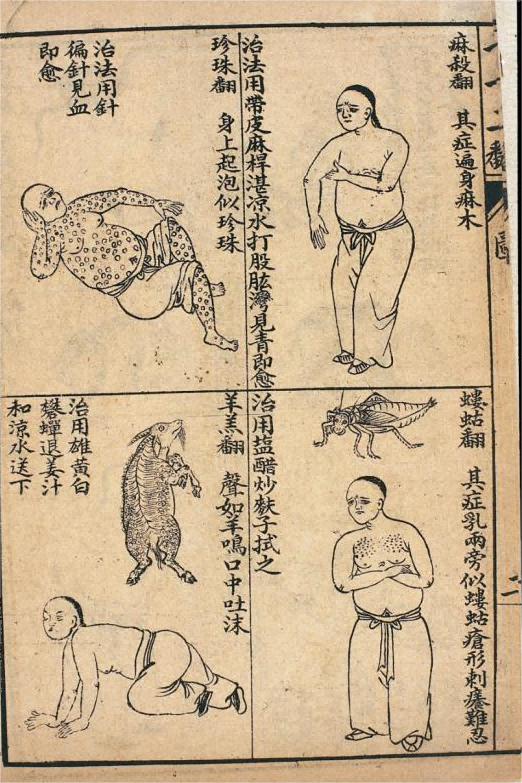 圖
二
痳殺翻 其症遍身痳木
治法用帶皮麻桿湛凉水打股肱灣見青即愈
珍珠翻 身上起泡似珍珠
治法用針
徧針見血
即愈
螻蛄翻 其症乳兩旁似螻蛄瘡形刺癢難忍
治用盐醋炒麩子拭之
羊羔翻 聲如羊鳴口中吐沫
治用雄黃白
礬蟬退姜汁
和凉水送下